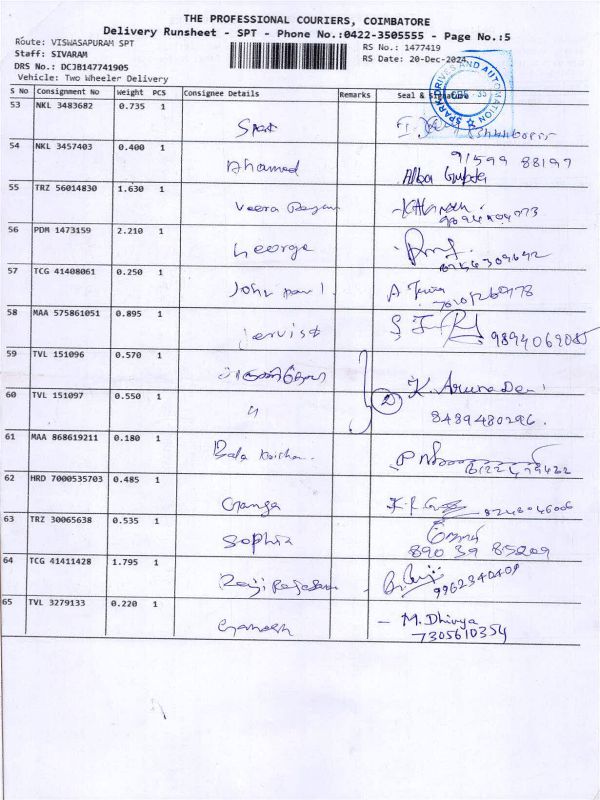 THE PROFESSIONAL COURIERS, COIMBATORE
Delivery Runsheet - SPT - Phone No.:0422-3505555 - Page No.:5
Route: VISWASAPURAM SPT
Staff: SIVARAM
DRS No.: DCJB147741905
Vehicle: Two Wheeler Delivery
RS No.: 1477419
RS Date: 20-Dec-2024
SPARK DRIVES AND AUTOMATION
S No Consignment No Weight PCS Consignee Details Remarks Seal & Signature
53 NKL 3483682 0.735 1
54 NKL 3457403 0.400 1 91599 88197
55 TRZ 56014830 1.630 1 Veera
56 PDM 1473159 2.210 1 George
57 TCG 41408061 0.250 1 John paul
58 MAA 575861051 0.895 1 9894069085
59 TVL 151096 0.570 1
K. Aruna Devi
60 TVL 151097 0.550 1 " 2
8489480296.
61 MAA 868619211 0.180 1 Bala
62 HRD 7000535703 0.485 1 Ganga
63 TRZ 30065638 0.535 1 Sophia
890 39 85209
64 TCG 41411428 1.795 1 9962340409
65 TVL 3279133 0.220 1 Ganesh - M. Dhivya
7305610354